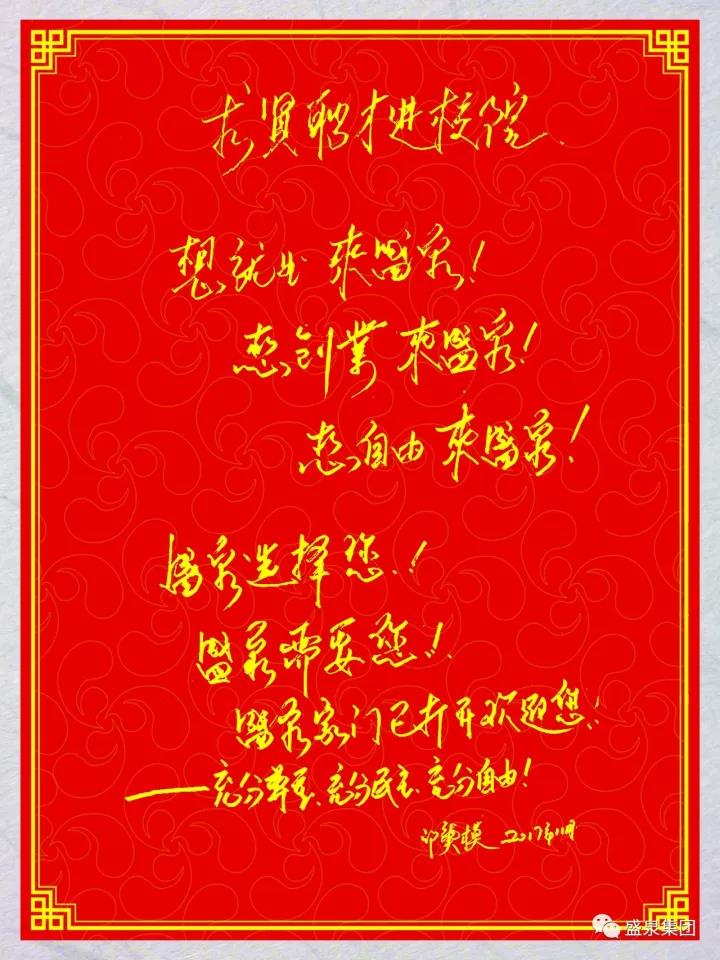 求贤聘才进校院
想就业 來盛泉！
想创業 來盛泉！
想自由 來盛泉！
盛泉选择您！
盛泉需要您！
盛泉家门已打开欢迎您！
——充分尊重、充分民主、充分自由！
2017年11月
盛泉集团